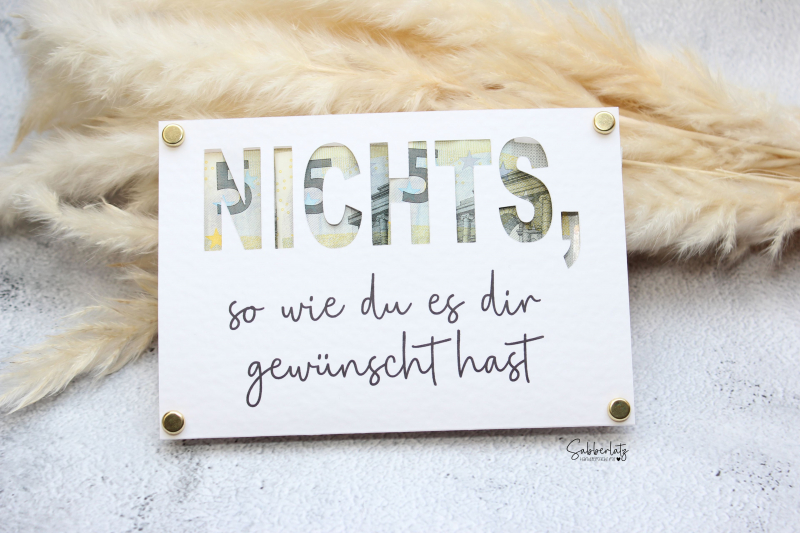 NICHTS,
5 5 5
so wie du es dir
gewünscht hast
Sabberlatz